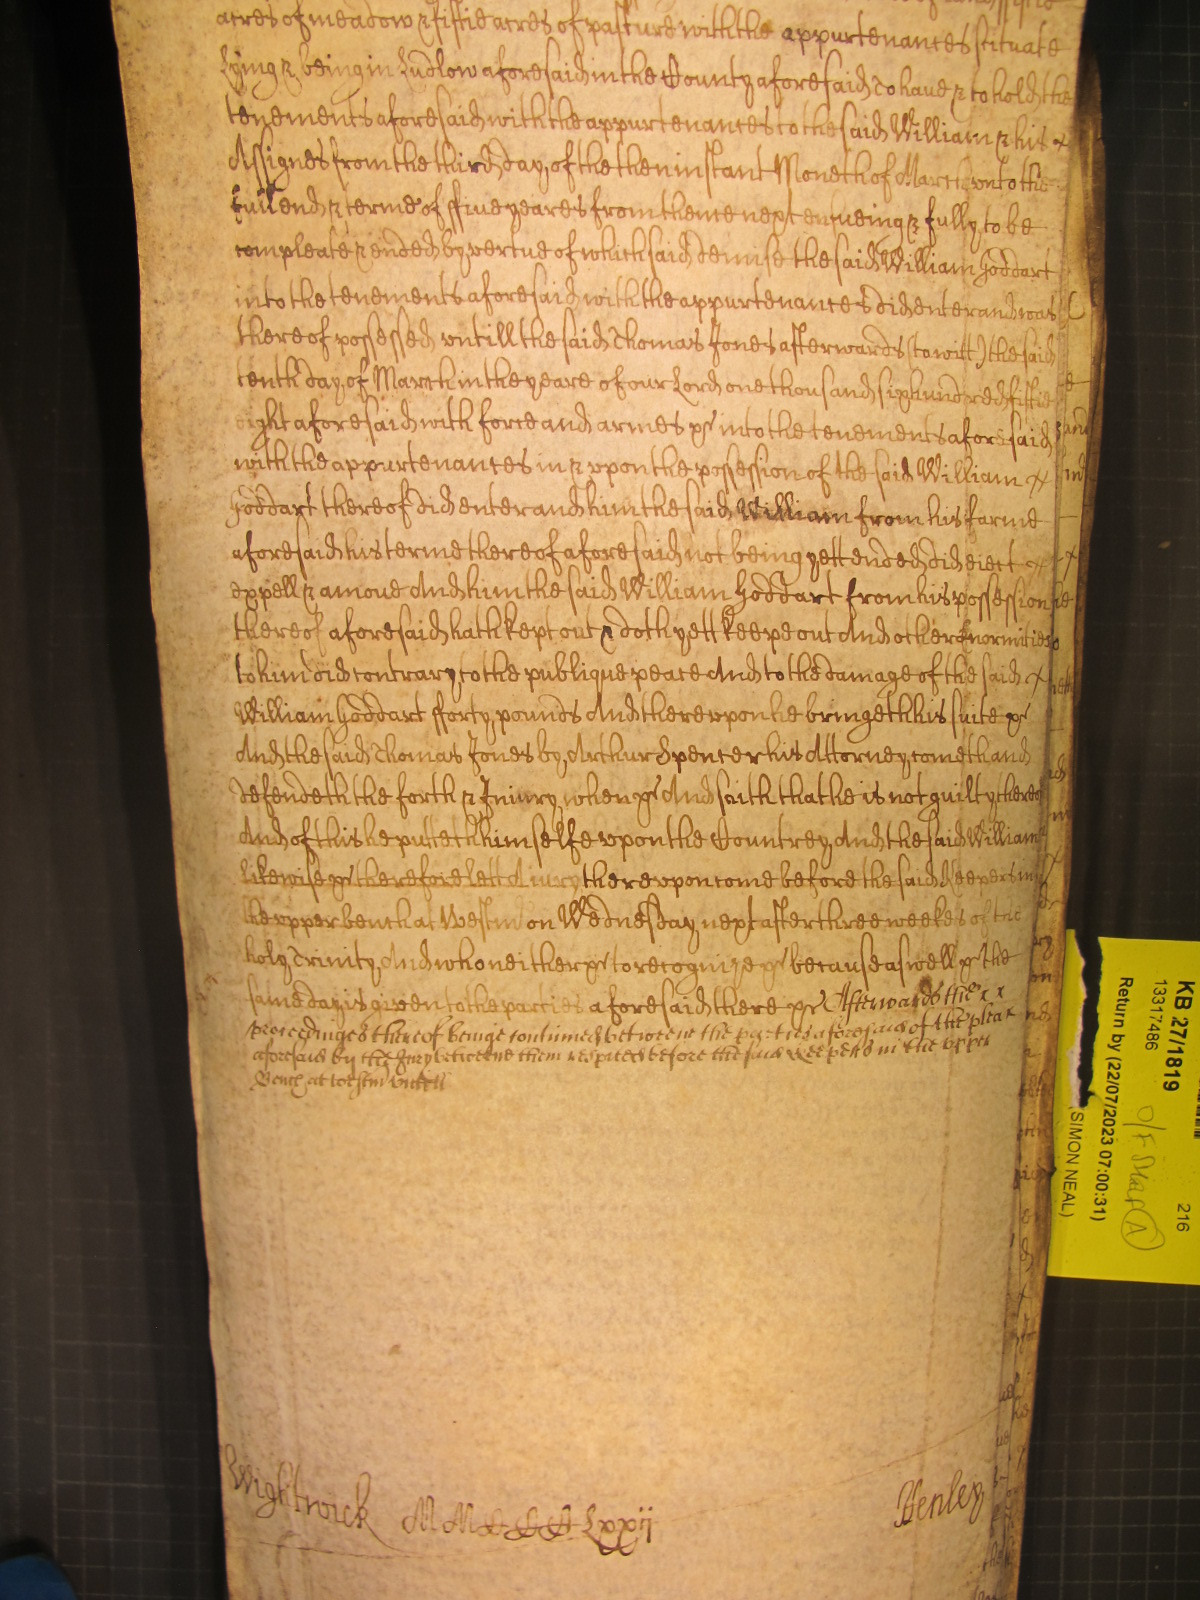 acres of meadow & fiftie acres of pasture with the appurtenances scituate
Lying & being in Ludlow aforesaid in the County aforesaid To have & to hold the
tenements aforesaid with the appurtenances to the said William & his
Assignes from the third day of the then instant Moneth of March unto the
full end & terme of ffive yeares from thence next ensueing & fully to be
compleate & ended by vertue of which said demise the said William Goddart
into the tenements aforesaid with the appurtenances did enter and was
thereof possessed untill the said Thomas Jones afterwards (to witt) the said
tenth day of March in the yeare of our Lord one thousand six hundred fiftie
eight aforesaid with force and armes &c into the tenements aforesaid
with the appurtenances in & upon the possession of the said William
Goddart thereof did enter and him the said William from his farme
aforesaid his terme thereof aforesaid not being yett ended did eiect
expell & amove And him the said William Goddart from his possession
thereof aforesaid hath kept out & doth yett keepe out And other enormities
to him did contrary to the publique peace And to the damage of the said
William Goddart fforty pounds And thereupon he bringeth his suite &c
And the said Thomas Jones by Arthur Spencer his Attorney cometh and
defendeth the forth & Iniury when &c And saith that he is not guilty thereof
And of this he putteth himselfe upon the Countrey And the said William
Likewise &c therefore lett A iury thereupon come before the said Keepers in
the upper bench at Westm on Wednesday next after three weekes of the
holy Trinity And who neither &c to recognize &c because aswell &c the
same day is given to the parties aforesaid there &c Afterwards the
proceedinges thereof beinge continued betweene the parties aforesaid of the plea
aforesaid by the Jury betweene them respited before the said Keepers in the upper
Bench at Westm untill
Wightwick MMCCCCLxxij Henley
KB 27/1819
216
13317486
O/F Star A
Return by (22/07/2023 07:00:31)
(SIMON NEAL)